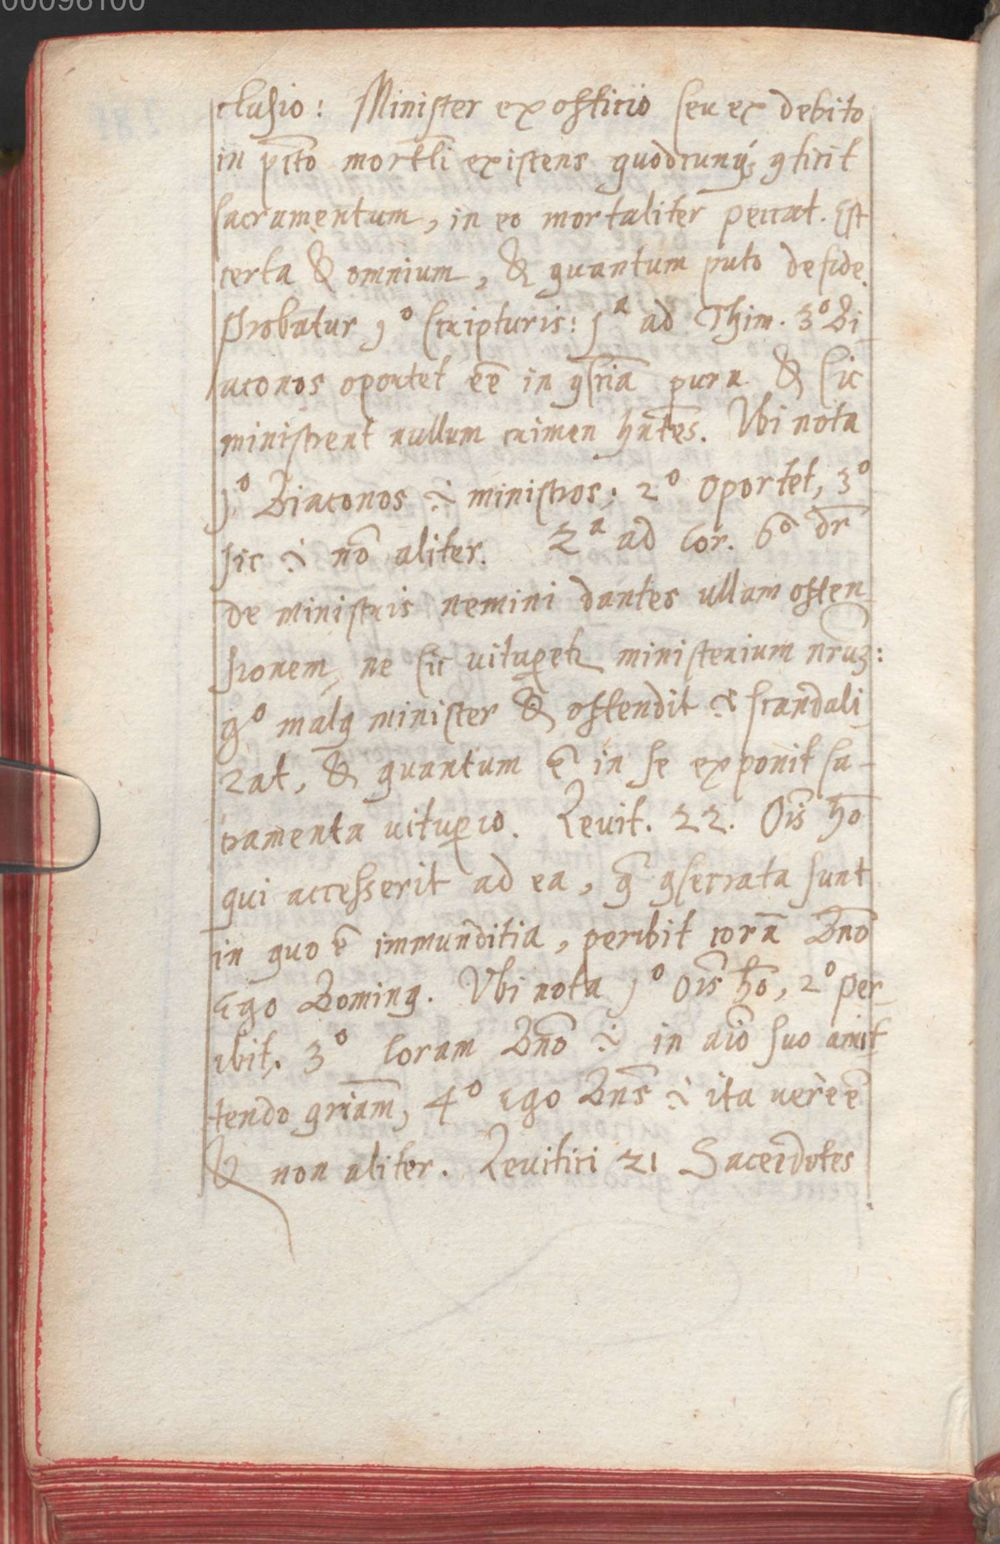 00098100
clusio: Minister ex officio seu ex debito
in pc̃to mortłi existens quodcunq; 9ficit
sacramentum, in eo mortaliter peccat. Est
certa & omnium, & quantum puto de fide.
Probatur 1º scripturis: 1ª ad Thim. 3º Di
aconos oportet eẽ in 9sciã pura & sic
ministrent nullum crimen hñtes. Vbi nota
1º Diaconos .i. ministros; 2º oportet, 3º
sic .i. nõ aliter. 2ª ad Cor. 6º dr̃
de ministris nemini dantes ullam offen
sionem, ne sic vitup̱et͛ ministerium nr̃uȝ:
gº mal9 minister & offendit .i. scandali
zat, & quantum ẽ in se exponit sa-
cramenta vitup̱io. Levit. 22. Oĩs hõ
qui accesserit ad ea, q̃ 9secrata sunt
in quo ẽ immunditia, peribit corã Dño
Ego Domin9. Vbi nota 1º oĩs hõ, 2º per
ibit. 3º Coram Dño .i. in aĩo suo amit
tendo gr̃iam, 4º Ego Dñs .i. ita verè ẽ
& non aliter. Levitici 21 Sacerdotes